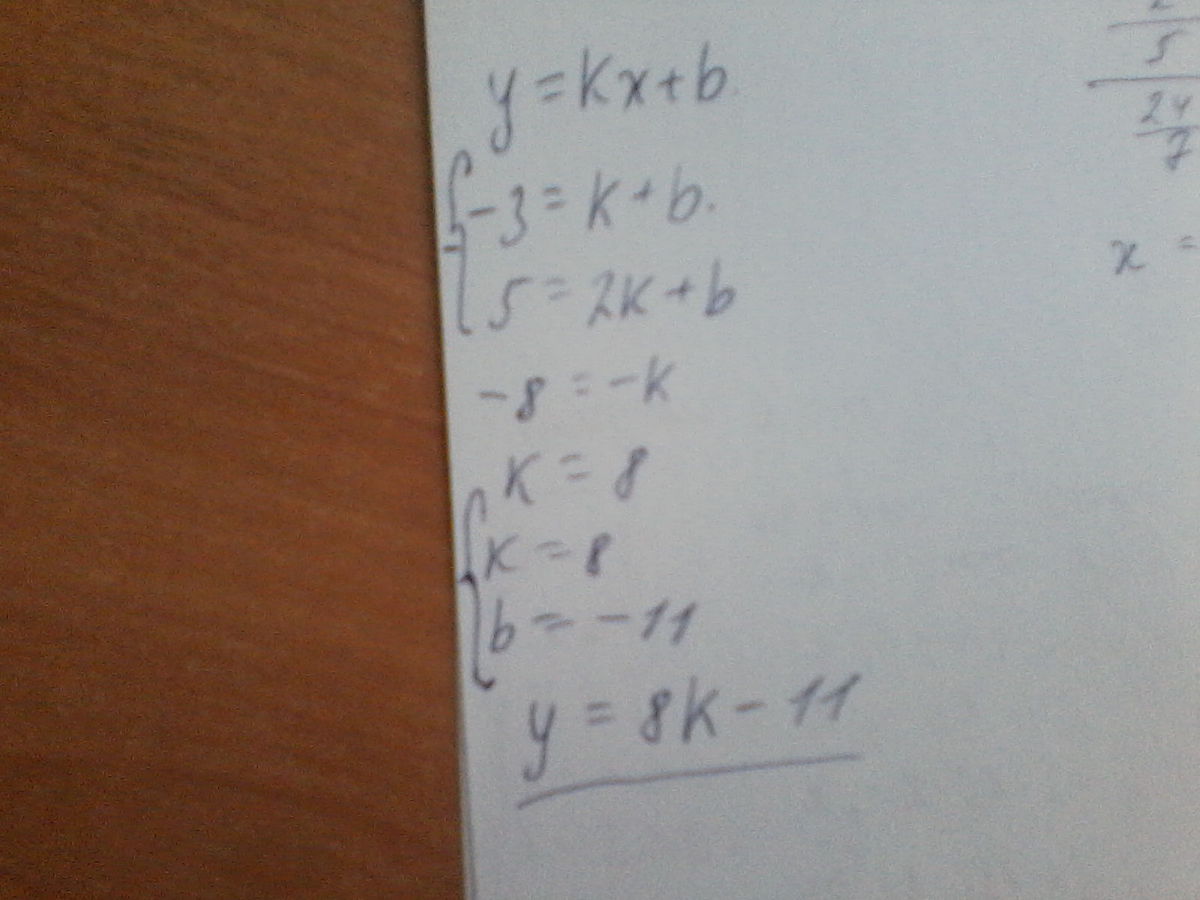 y = kx + b
-3 = k + b.
5 = 2k + b
-8 = -k
k = 8
k = 8
b = -11
y = 8k - 11
5
24
7
x =